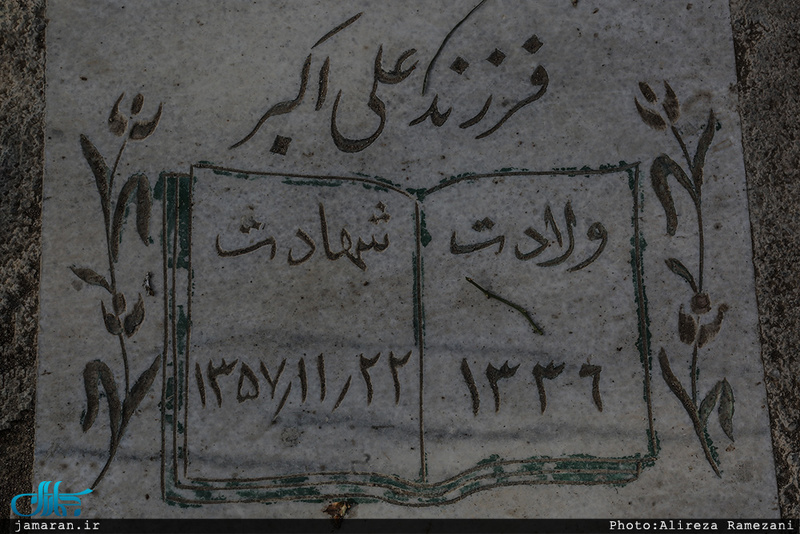 فرزند علی اکبر
ولادت
۱۳۳۶
شهادت
۱۳۵۷/۱۱/۲۲
جماران
jamaran.ir
Photo:Alireza Ramezani